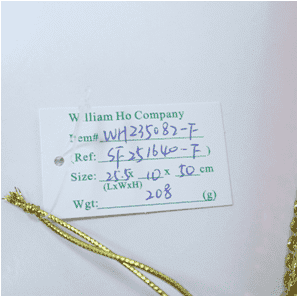 William Ho Company
Item# WH235082-F
(Ref: SF251640-F)
Size: 25.5 x 10 x 50 cm
(LxWxH)
Wgt: 208 (g)